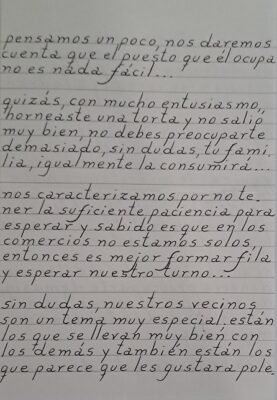 pensamos un poco, nos daremos
cuenta que el puesto que él ocupa
no es nada fácil...
quizás, con mucho entusiasmo,
horneaste una torta y no salió
muy bien, no debes preocuparte
demasiado, sin dudas, tu fami-
lia, igualmente la consumirá...
nos caracterizamos por no te-
ner la suficiente paciencia para
esperar y sabido es que en los
comercios no estamos solos,
entonces es mejor formar fila
y esperar nuestro turno...
sin dudas, nuestros vecinos
son un tema muy especial. están
los que se llevan muy bien con
los demás y también están los
que parece que les gustara pole-